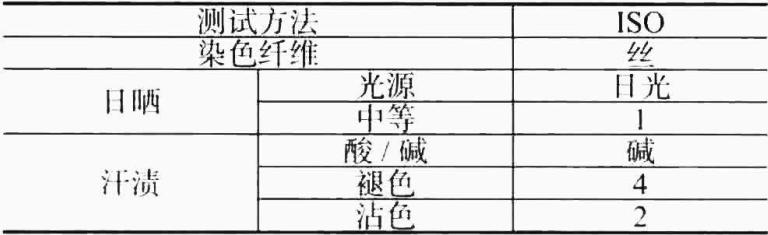 测试方法 ISO
染色纤维 丝
日晒 光源 日光
中等 1
汗渍 酸/碱 碱
褪色 4
沾色 2